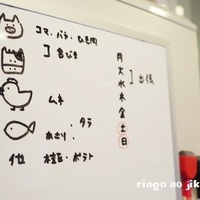 コマ・バラ・ひき肉
] 合びき
ムネ
・タラ
あさり・
他
・ポテト
月
火
水
木
金
土
日
] 出張
ringo no jik